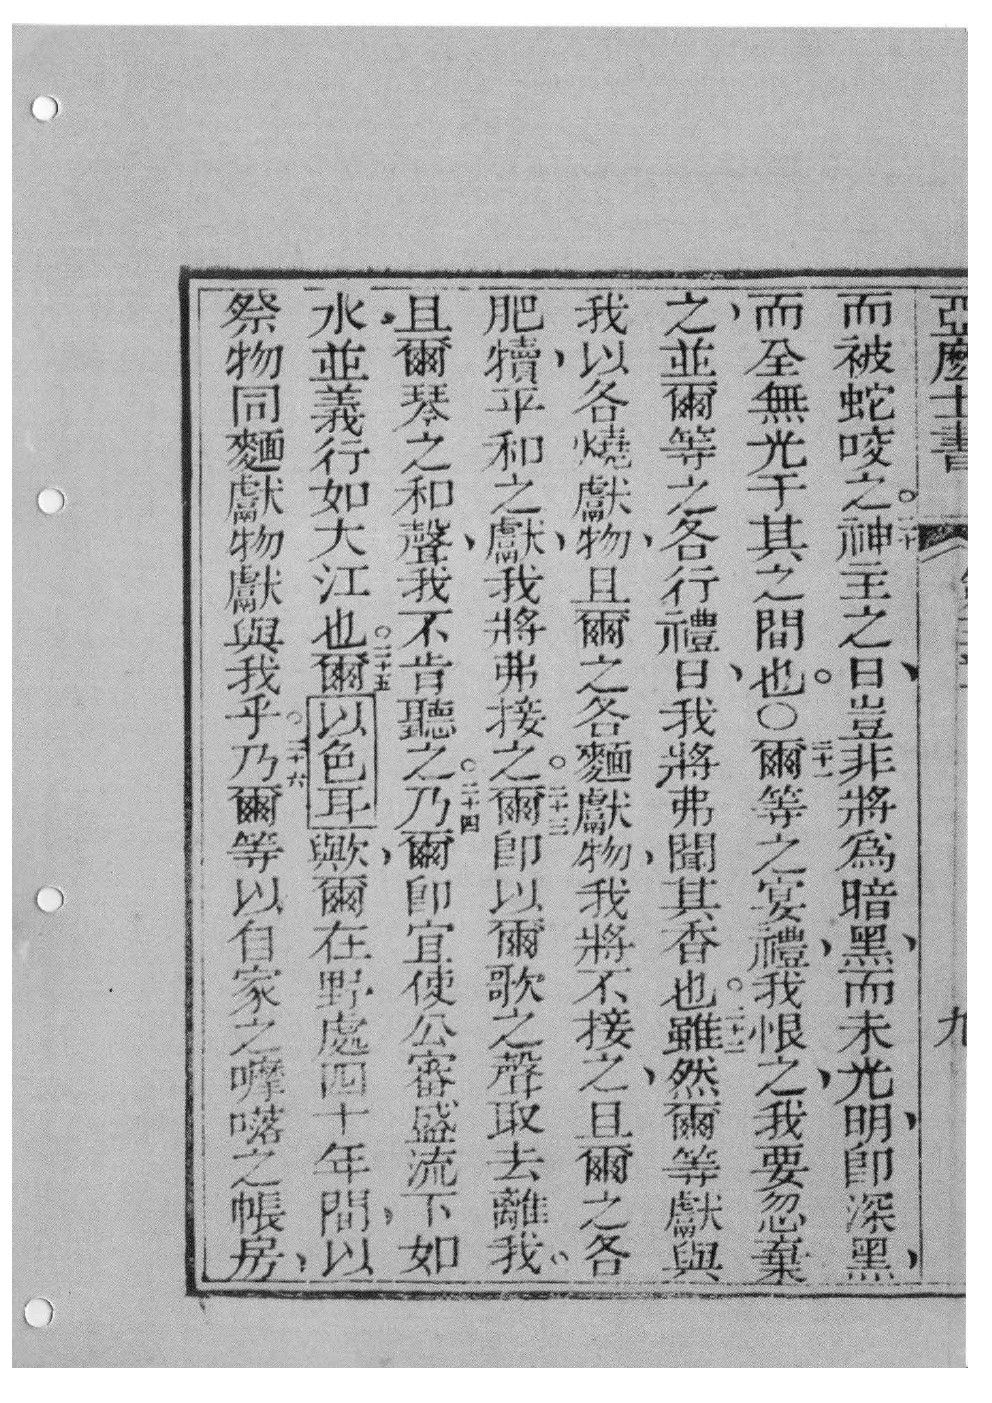 亞麼士書 九
而被蛇咬之。二十神主之日、豈非將爲暗黑、而未光明、即深黑、
而全無光于其之間也。〇二十一爾等之宴禮、我恨之、我要忽棄
之、並爾等之各行禮日、我將弗聞其香也。二十二雖然爾等獻與
我以各燒獻物、且爾之各麵獻物、我將不接之、且爾之各
肥犢、平和之獻、我將弗接之。二十三爾即以爾歌之聲取去離我、
且爾琴之和聲、我不肯聽之。二十四乃爾即宜使公審盛流下如
水、並義行如大江也。二十五爾以色耳歟、爾在野處四十年間、以
祭物同麵獻物獻與我乎。二十六乃爾等以自家之嚤囉之帳房、